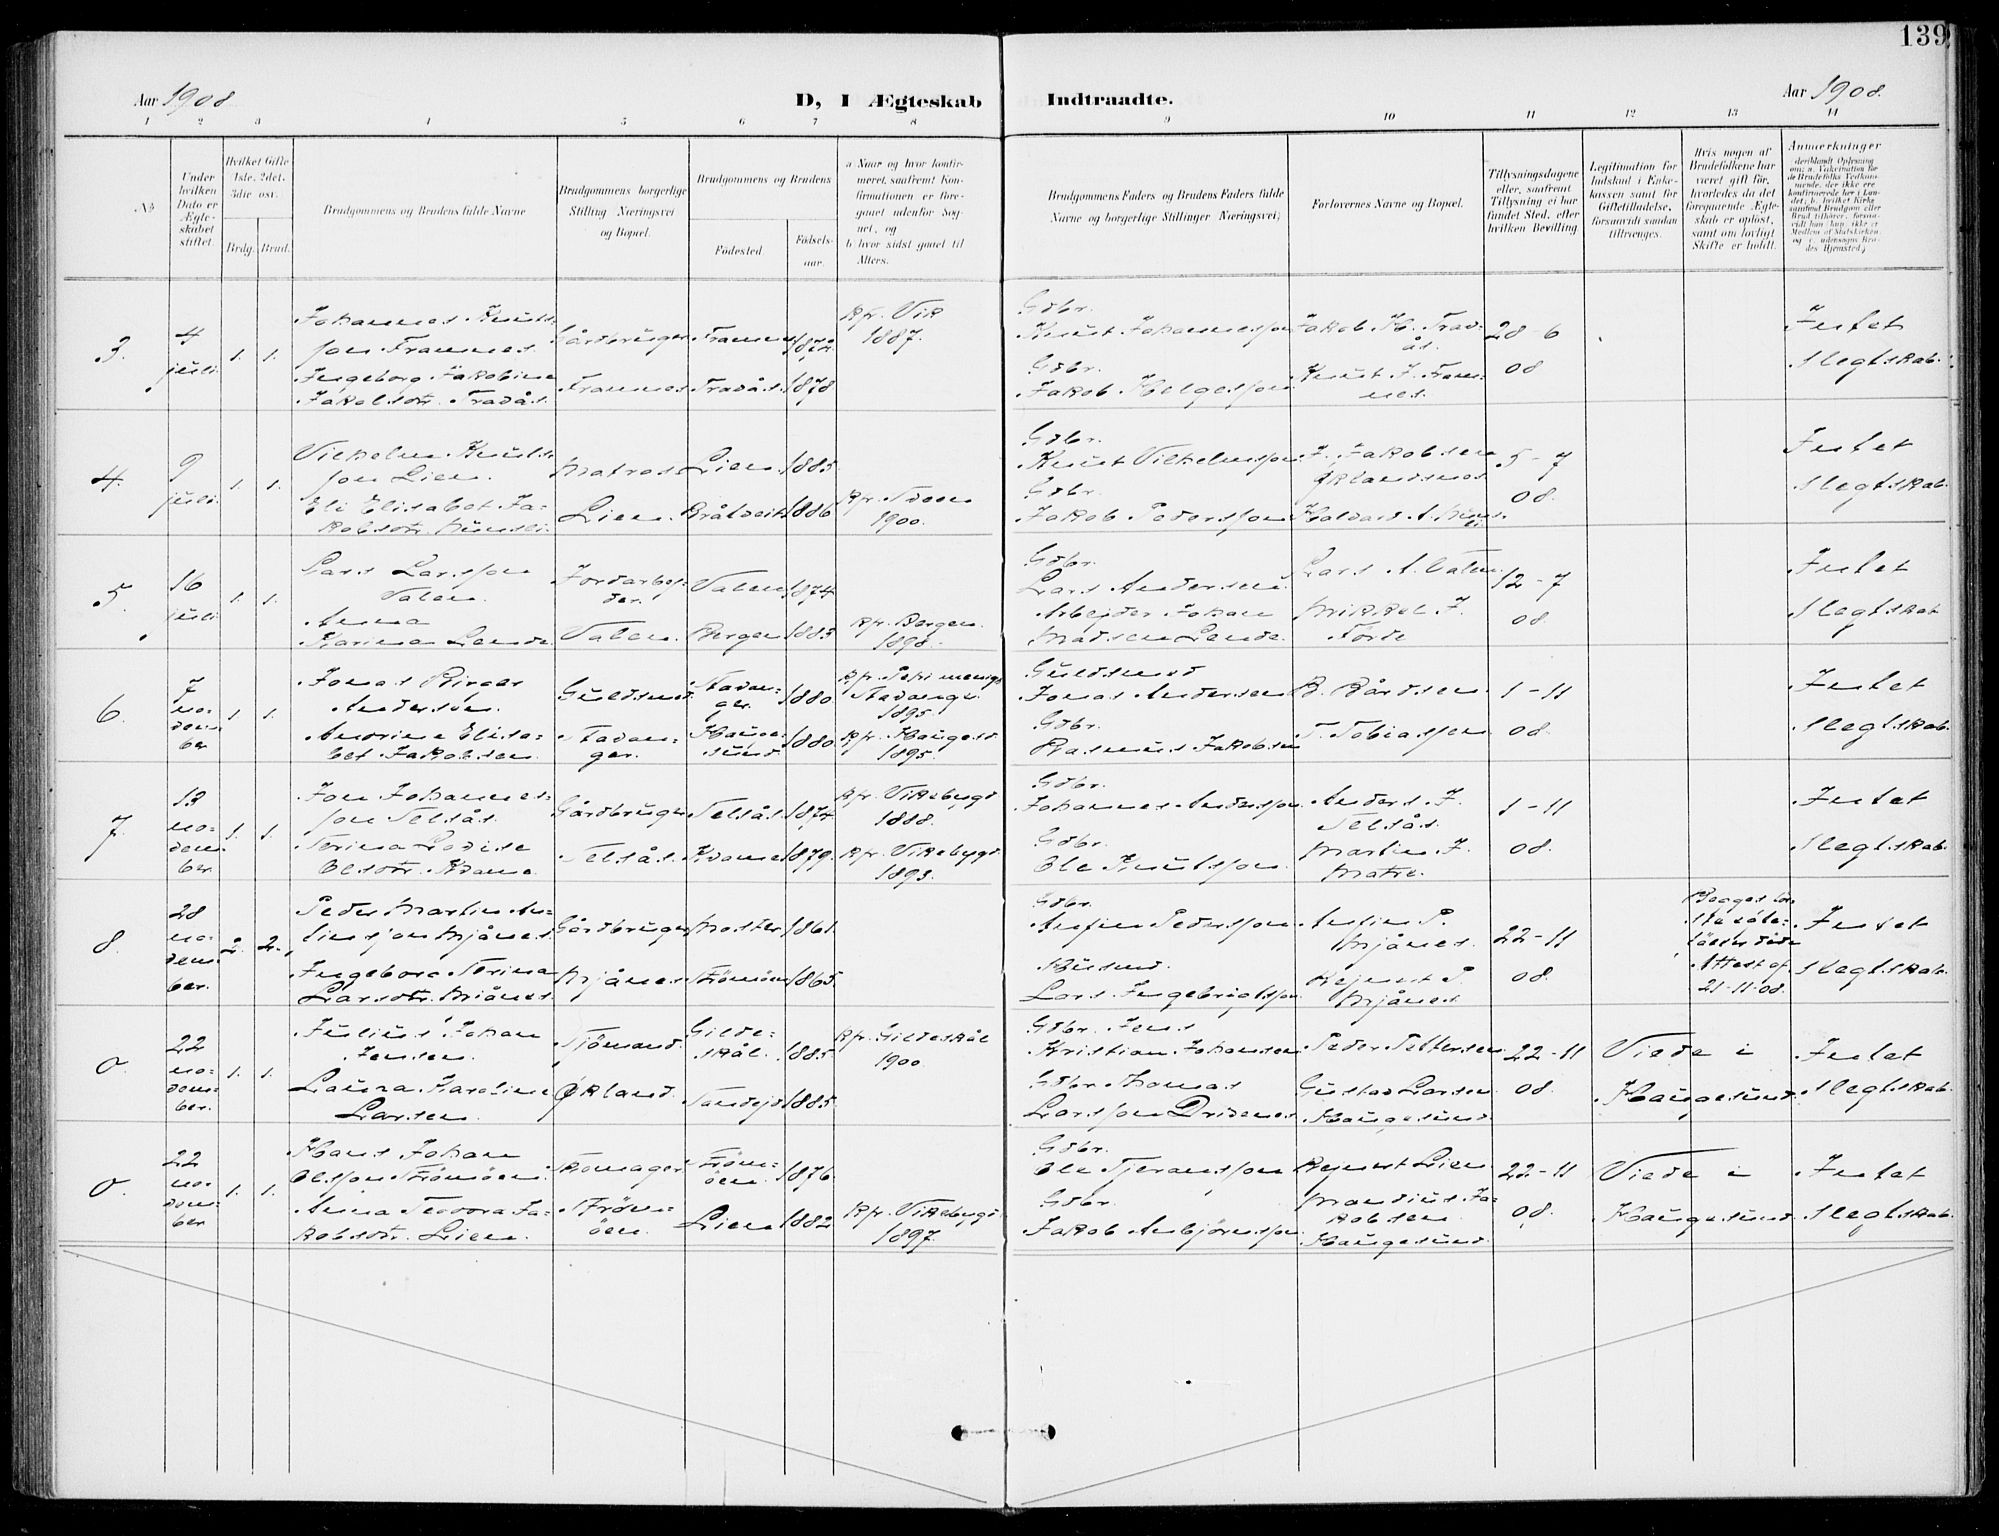 139
Aar 1908
D, I Ægteskab Indtraadte.
Aar 1908.
1 2 3 4 5 6 7 8 9 10 11 12 13 14
No
Under hvilken Dato er Ægteskabet stiftet.
Hvilket Gifte 1ste, 2det, 3die osv.
Brdg. Brud.
Brudgommens og Brudens fulde Navne
Brudgommens borgerlige Stilling Næringsvei og Bopæl.
Brudgommens og Brudens
Fødested. Fødselsaar.
a Naar og hvor konfirmeret, saafremt Konfirmationen er foregaaet udenfor Sognet, og
b. hvor sidst gaaet til Alters.
Brudgommens Faders og Brudens Faders fulde Navne og borgerlige Stillinger Næringsvei;
Forlovernes Navne og Bopæl.
Tillysningsdagene eller, saafremt Tillysning ei har fundet Sted, efter hvilken Bevilling.
Legitimation for Indskud i Enkekassen samt for Giftetilladelse, forsaavidt saadan tiltrænges.
Hvis nogen af Brudefolkene har været gift før, hvorledes da det foregaaende Ægteskab er opløst, samt om lovligt Skifte er holdt.
Anmerkninger
3.
4 juli
1. 1.
Johannes Knuts-
son Framnes.
Ingeborg Jakobine
Jakobsdtr. Tradås.
Gårdbruger
Framnes
Framnes 1872
Tradås 1878
Kfr. Vik
1887.
Gdbr.
Knut Johannesson
Gdbr.
Jakob Helgesson
Jakob H. Trad-
ås.
Knut J. Fram-
nes.
28-6
08
Intet
slegtskab.
4.
9 juli.
1. 1.
Vilhelm Knuts-
son Lien.
Eli Elisabet Ja-
kobsdtr.
Matros
Lien.
Lien 1885
1886
1900.
Gdbr.
Knut Vilhelmsson
Gdbr.
Jakob Pedersson
J. Jakobsen
Ørlandsnes
5-7
08.
Intet
slegtskab.
5.
16 juli
1. 1.
Lars Larsson
Valen.
Anna
Karina Lende
Jordarbei-
der.
Valen.
Valen 1874
Bergen 1885
Kfr. Bergen.
1898.
Gdbr.
Lars Andersen
Arbejder Johan
Madsen Lende.
Lars A. Valen
Mikkel J.
Förde
12-7
08
Intet
slegtskab
6.
7 no-
vem-
ber
1. 1.
Jonas Birger
Andersen.
Andrine Elisa-
bet Jakobsen.
Guldsmed
Stavan-
ger.
Stavan-
ger. 1880
Hauge-
sund 1880
Stavanger
1895.
Kfr. Haugesd.
1895.
Guldsmed
Jonas Andersen
Gdbr.
Rasmus Jakobsen
B. Bårdsen
T. Tobiassen
1-11
08.
Intet
slegtskab.
7.
13
no-
vem-
ber.
1. 1.
Jon Johannes-
son Telsås.
Serina Lovise
Olsdtr. Kvame.
Gårdbruger
Telsås.
Telsås 1874
Kvame 1879.
Kfr. Vikebygd
1888.
Kfr. Vikebygd.
1893.
Gdbr.
Johannes Andersson
Gdbr.
Ole Knutsson
Anders J.
Telsås.
Martin J.
Matre.
1-11
08.
Intet
slegtskab.
8.
28
no-
vem-
ber.
2. 2.
Peder Martin An-
finsson Mjånes.
Ingeborg Serina
Larsdtr. Mjånes.
Gårdbruger
Mjånes
Moster 1861
Strömöen 1865.
Gdbr.
Anfin Pedersson
Husmd.
Lars Ingebrigtsson
Anfin P.
Mjånes.
Rejnert P.
Mjånes
22-11
08.
Attest af
21-11-08.
Intet
slegtskab.
0.
22
no-
vem-
ber.
1. 1.
Julius Johan
Jensen.
Laura Karoline
Larsen.
Sjömand.
Ørland.
Gilde-
skål. 1885
1885.
Kfr. Gildeskål
1900.
Gdbr. Jens
Kristian Johansen
Gdbr Thomas
Larsson
Peder Pettersen
Gustav Larsen
Haugesund
22-11
08.
Viede i
Haugesund.
Intet
slegtskab.
0.
22
no-
vem-
ber
1. 1.
Hans Johan
Olsson Strömöen.
Anna Teodora Ja-
kobsdtr. Lien.
Skomager
Ström-
öen.
Ström-
öen. 1876
Lien 1882
Kfr. Vikebygd
1897.
Gdbr.
Ole Tjeransson
Gdbr.
Jakob Anbjörnsson
Rejnert Lien
Mandius Ja-
kobsen
Haugesund
22-11
08.
Viede i
Haugesund
Intet
slegtskab.